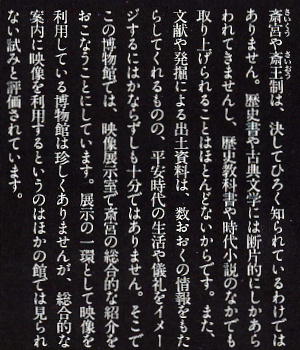 斎宮や斎王制は、決してひろく知られているわけでは
ありません。歴史書や古典文学には断片的にしかあら
われてきませんし、歴史教科書や時代小説のなかでも
取り上げられることはほとんどないからです。また、
文献や発掘による出土資料は、数おおくの情報をもた
らしてくれるものの、平安時代の生活や儀礼をイメー
ジするにはかならずしも十分ではありません。そこで
この博物館では、映像展示室で斎宮の総合的な紹介を
おこなうことにしています。展示の一環として映像を
利用している博物館は珍しくありませんが、総合的な
案内に映像を利用するというのはほかの館では見られ
ない試みと評価されています。
さいくう
さいおう